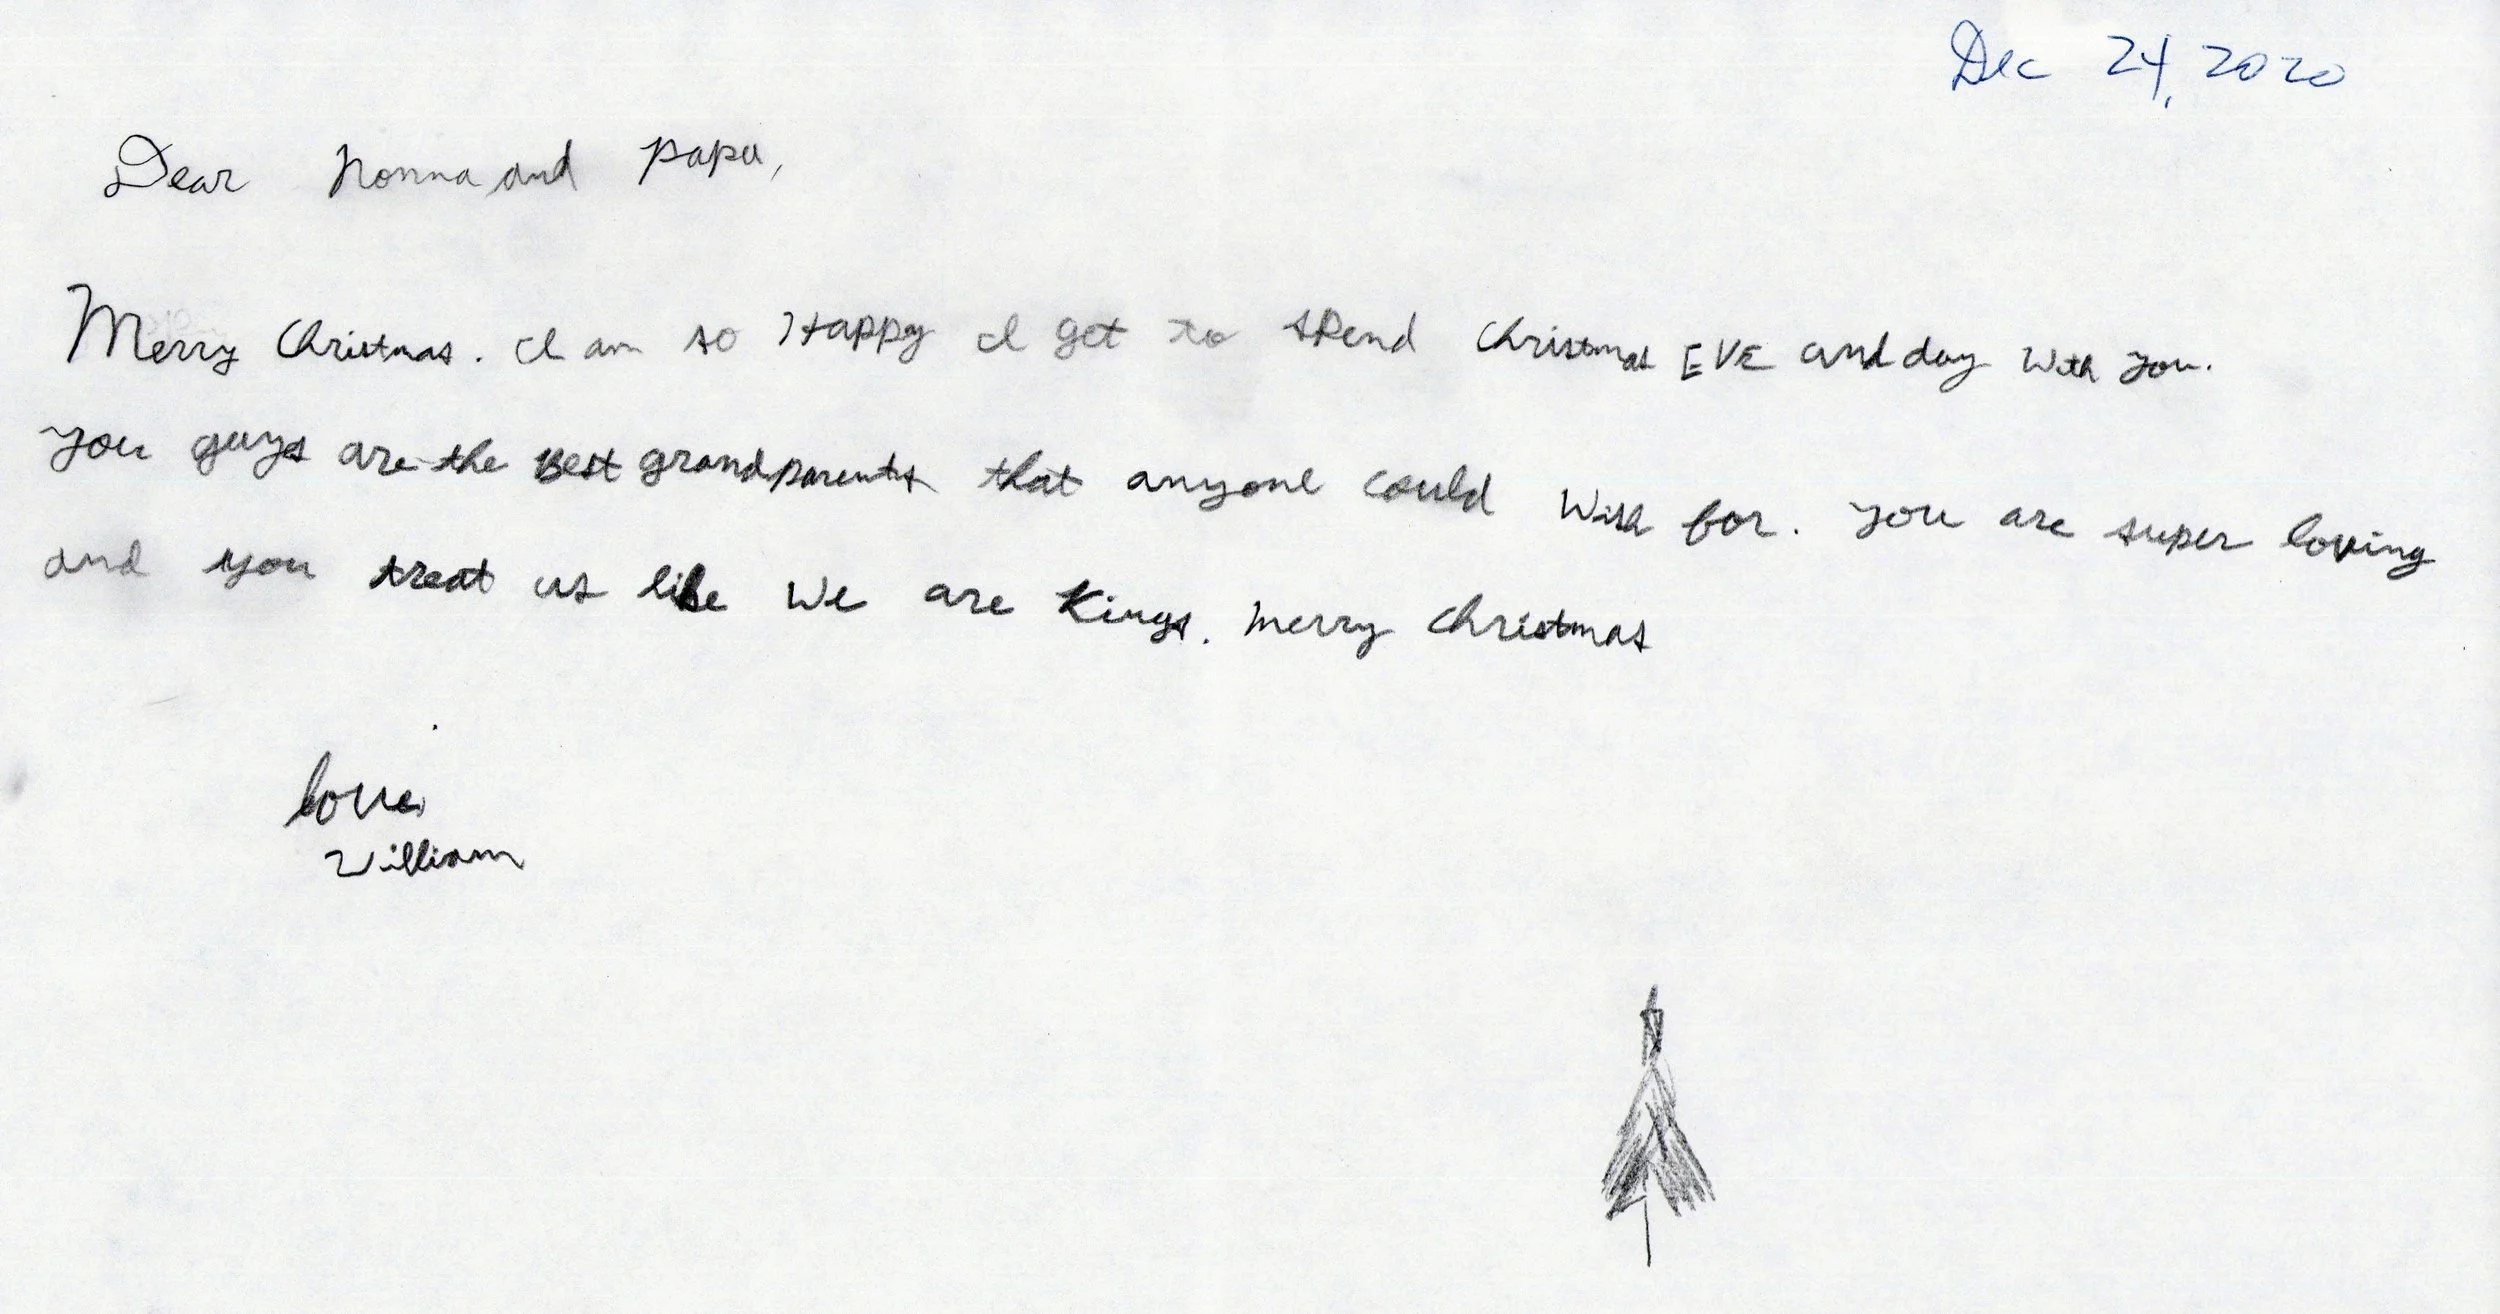 Dec 24, 2020
Dear Nonna and Papa,
Merry Christmas. I am so Happy I get to spend Christmas EVE and day With you.
you guys are the Best grandparents that anyone could Wish for. you are super loving
and you treat us like We are Kings. Merry Christmas
love,
William